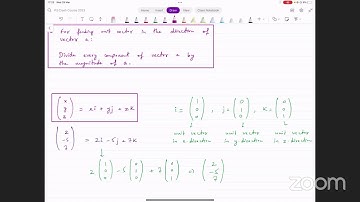 For finding unit vector in the direction of
vector a:
Divide every component of vector a by
the magnitude of a.
(x y z) = xi + yj + zk
i = (1 0 0), j = (0 1 0), k = (0 0 1)
unit vector in x-direction
unit vector in y-direction
unit vector in z-direction
(2 -5 7) = 2i - 5j + 7k
2 (1 0 0) - 5 (0 1 0) + 7 (0 0 1) ⇒ (2 -5 7)
zoom